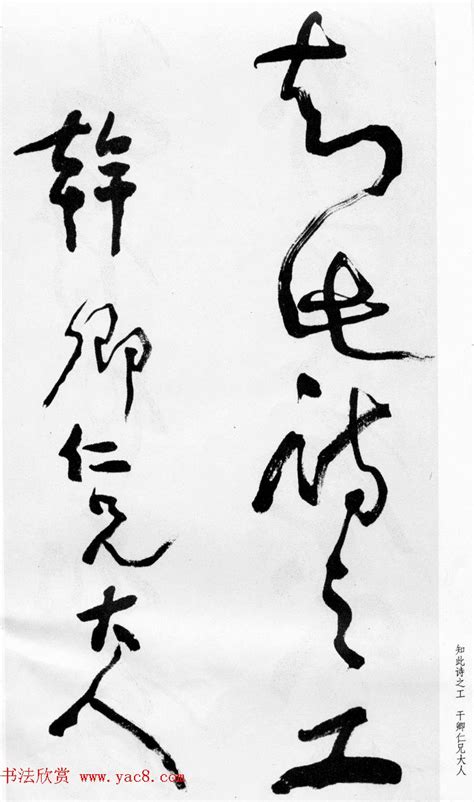 知此诗之工
幹卿仁兄大人
知此诗之工　干卿仁兄大人
书法欣赏 www.yac8.com